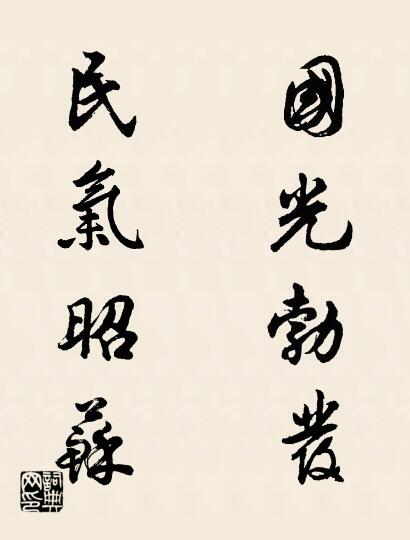 國光勃發
民氣昭蘇
詞典網印